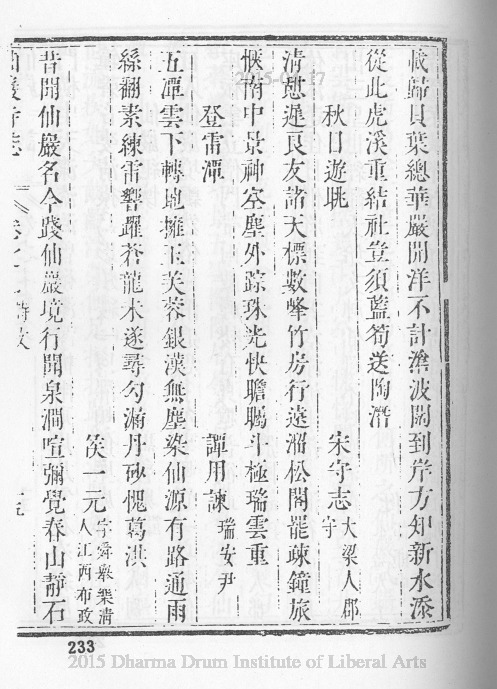 載歸貝葉總華嚴開洋不計滄波闊到岸方知新水添
從此虎溪重結社豈須藍筍送陶潛
秋日遊眺 宋守志大梁人郡守
清愬遲良友諸天標數峰竹房行遠澗松閣罷疎鐘旅
愜清中景神空塵外踪珠光快瞻矚斗極瑞雲重
登雷潭 譚用諫瑞安尹
五潭雲下轉地擁玉芙蓉銀漢無塵染仙源有路通雨
絲翻素練雷響躍蒼龍未遂尋勾漏丹砂愧葛洪
侯一元字舜舉樂清人江西布政
昔聞仙巖名今踐仙巖境行聞泉澗喧彌覺春山靜石
仙巖寺志 卷之 詩文
233
2015 Dharma Drum Institute of Liberal Arts